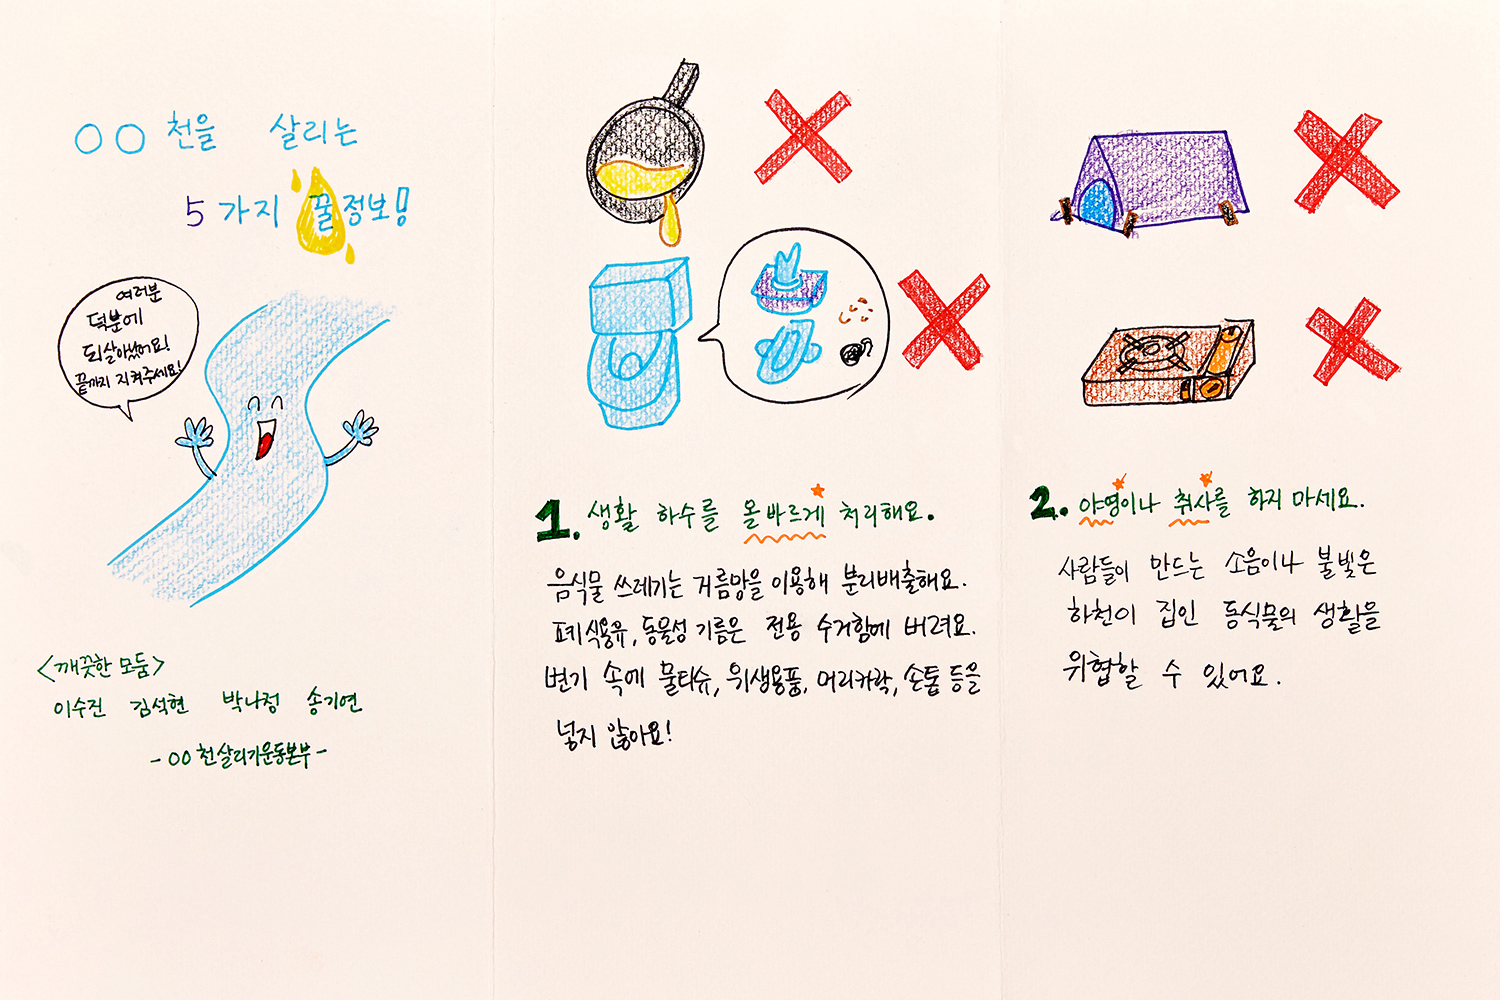 ○○천을 살리는
5가지 꿀정보!
여러분
덕분에
되살아났어요!
끝까지 지켜주세요!
<깨끗한 모둠>
이수진 김석현 박나정 송기연
- ○○천살리기운동본부 -
1. 생활 하수를 올바르게 처리해요.
음식물 쓰레기는 거름망을 이용해 분리배출해요.
폐식용유, 동물성 기름은 전용 수거함에 버려요.
변기 속에 물티슈, 위생용품, 머리카락, 손톱 등을
넣지 않아요!
2. 야영이나 취사를 하지 마세요.
사람들이 만드는 소음이나 불빛은
하천이 집인 동식물의 생활을
위협할 수 있어요.